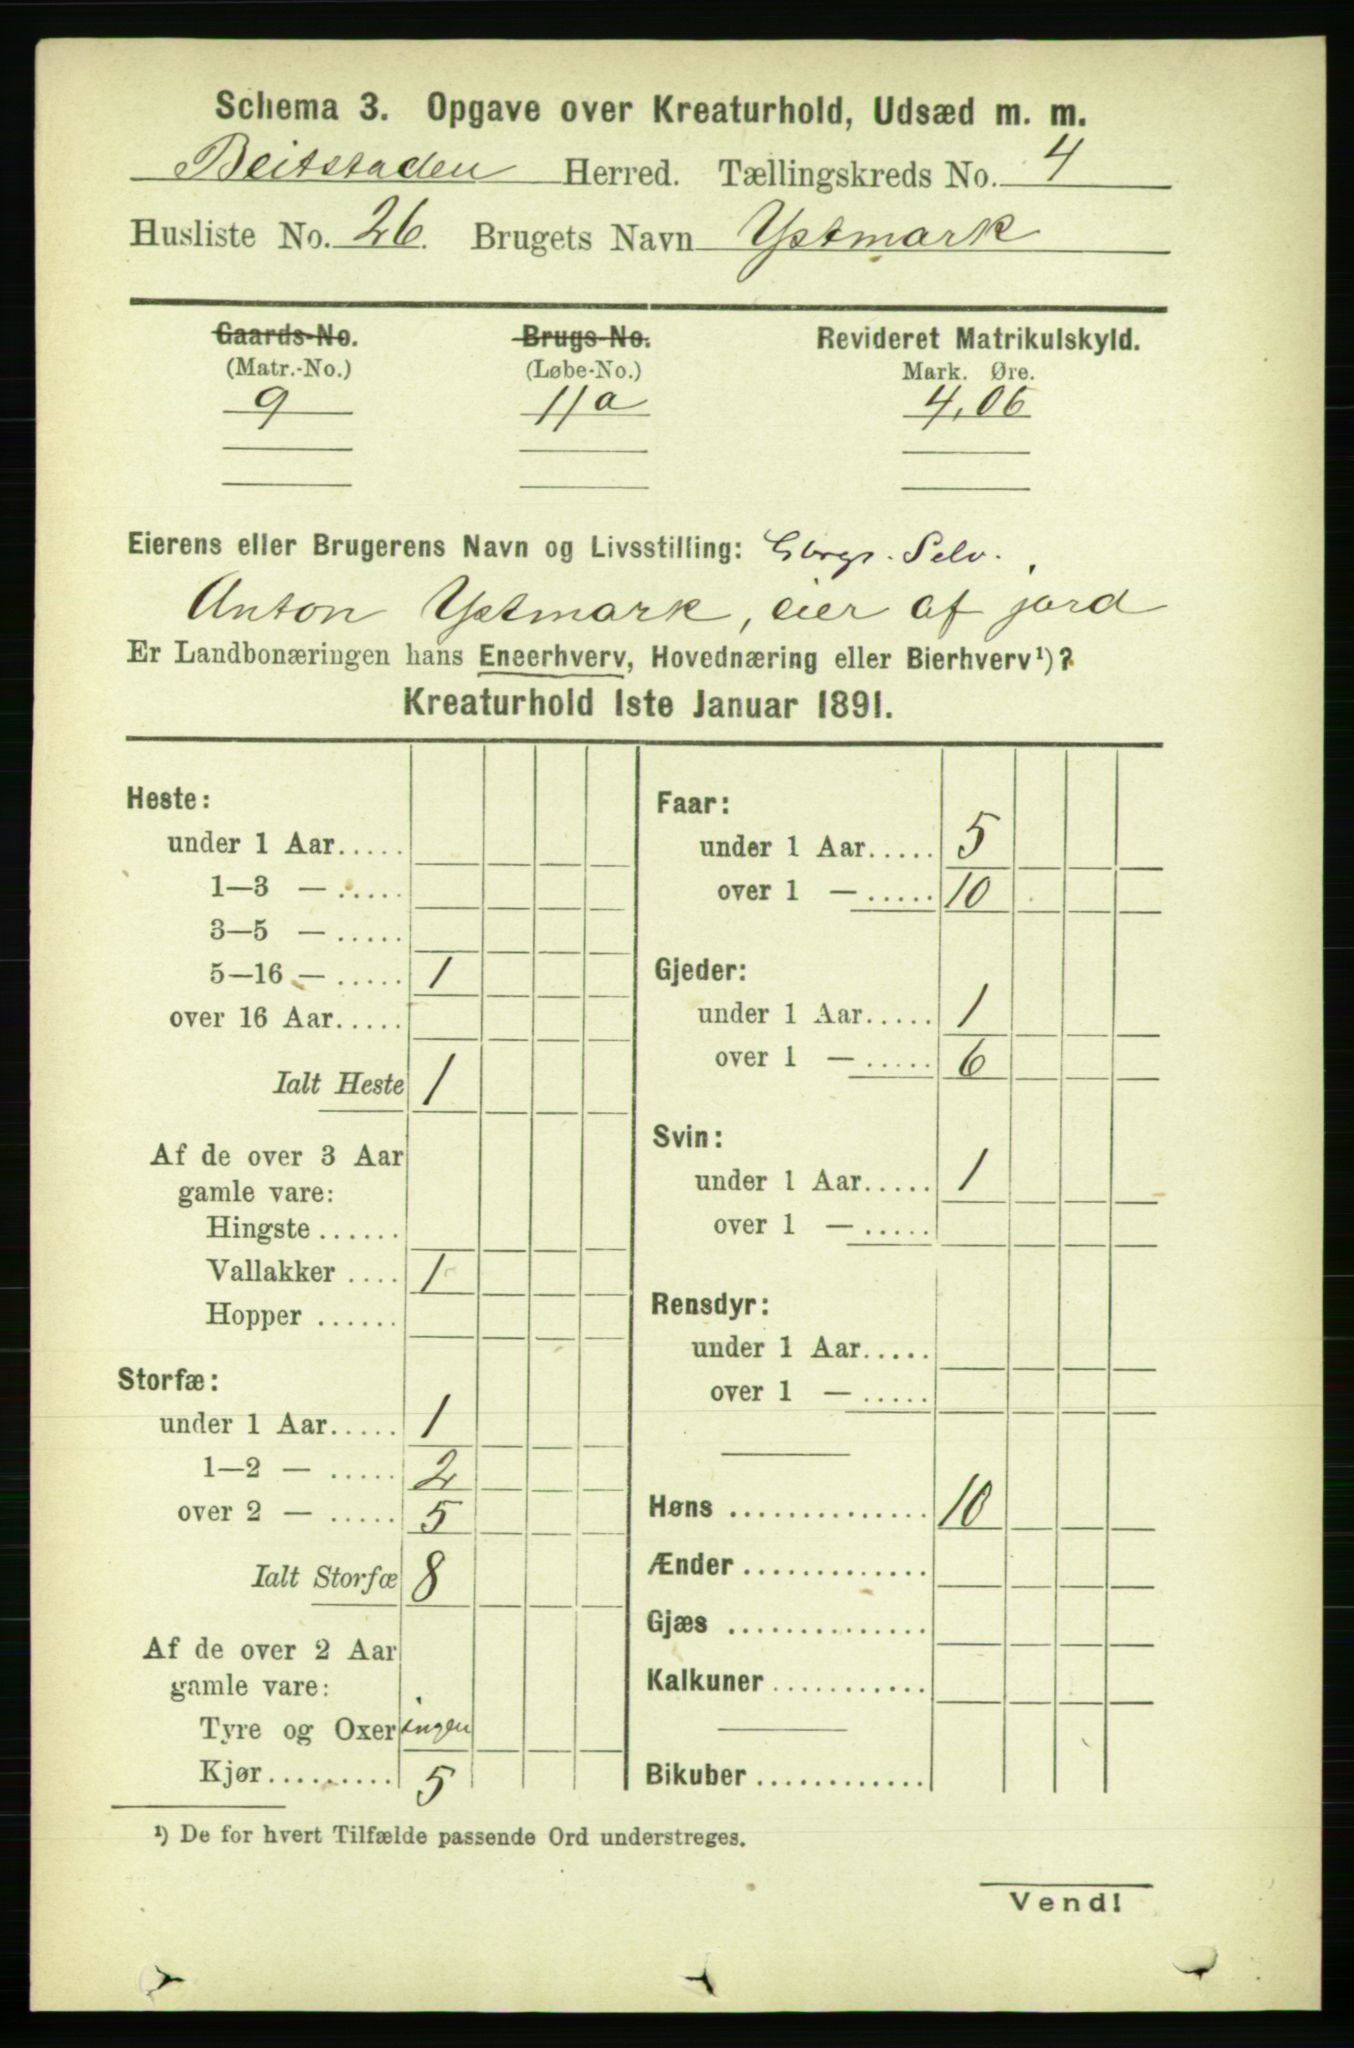 Schema 3. Opgave over Kreaturhold, Udsæd m. m.
Beitstaden Herred. Tællingskreds No. 4
Husliste No. 26. Brugets Navn Ystmark
Gaards-No. Brugs-No. Revideret Matrikulskyld.
(Matr.-No.) (Løbe-No.) Mark. Øre.
9 11a 4,06
Eierens eller Brugerens Navn og Livsstilling: Selv.
Anton Ystmark, eier af jord
Er Landbonæringen hans Eneerhverv, Hovednæring eller Bierhverv¹)?
Kreaturhold 1ste Januar 1891.
Heste:
under 1 Aar.....
1—3 — .....
3—5 — .....
5—16 — ..... 1
over 16 Aar.....
Ialt Heste 1
Af de over 3 Aar
gamle vare:
Hingste ......
Vallakker .... 1
Hopper ......
Storfæ:
under 1 Aar..... 1
1—2 — ..... 2
over 2 — ..... 5
Ialt Storfæ 8
Af de over 2 Aar
gamle vare:
Tyre og Oxer ingen
Kjør......... 5
Faar:
under 1 Aar..... 5
over 1 — ..... 10
Gjeder:
under 1 Aar..... 1
over 1 — ..... 6
Svin:
under 1 Aar..... 1
over 1 — .....
Rensdyr:
under 1 Aar.....
over 1 — .....
Høns .............. 10
Ænder .............
Gjæs ..............
Kalkuner ...........
Bikuber ............
¹) De for hvert Tilfælde passende Ord understreges.
Vend!